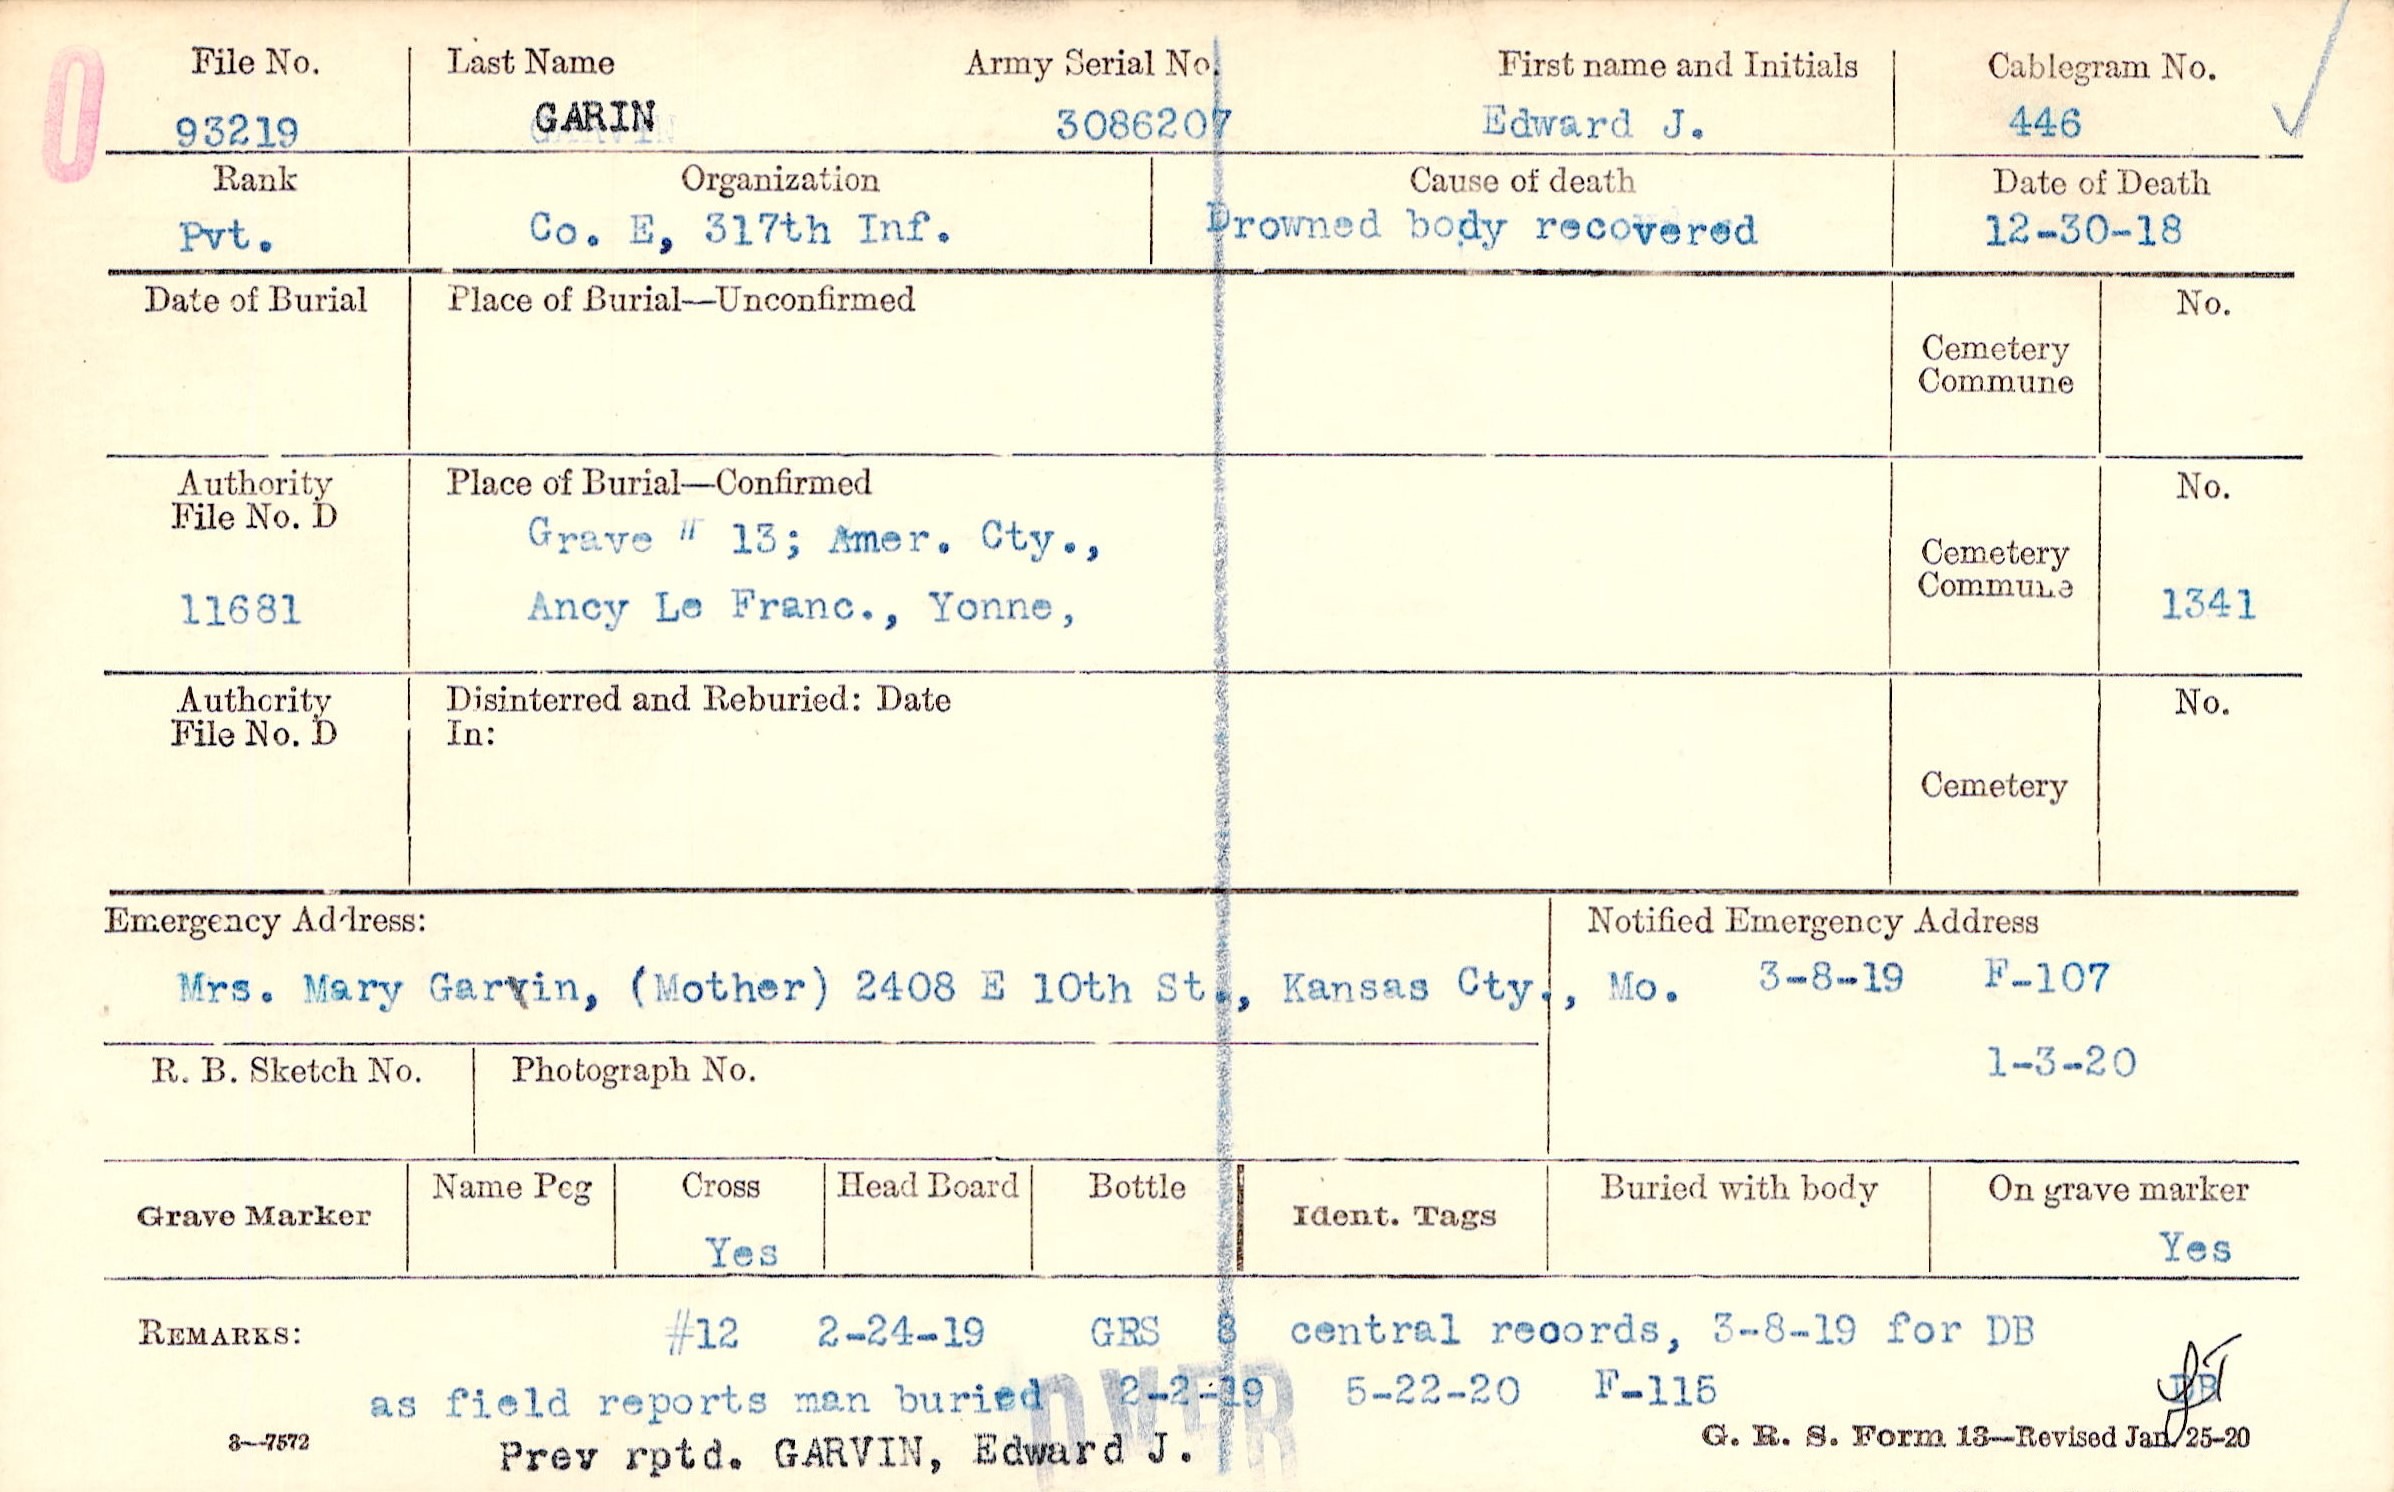 File No. Last Name Army Serial No. First name and Initials Cablegram No.
93219 GARIN 3086207 Edward J. 446
Rank Organization Cause of death Date of Death
Pvt. Co. E, 317th Inf. Drowned body recovered 12-30-18
Date of Burial Place of Burial—Unconfirmed No.
Cemetery
Commune
Authority Place of Burial—Confirmed No.
File No. D
Grave # 13; Amer. Cty., Cemetery
Commune
11681 Ancy Le Franc., Yonne, 1341
Authority Disinterred and Reburied: Date No.
File No. D In:
Cemetery
Emergency Address: Notified Emergency Address
Mrs. Mary Garvin, (Mother) 2408 E 10th St., Kansas Cty., Mo. 3-8-19 F-107
R. B. Sketch No. Photograph No. 1-3-20
Name Peg Cross Head Board Bottle Buried with body On grave marker
Grave Marker Ident. Tags
Yes Yes
REMARKS: #12 2-24-19 GRS 8 central records, 3-8-19 for DB
as field reports man buried 2-2-19 5-22-20 F-115 DB
OVER
3—7572 G. R. S. Form 13—Revised Jan. 25-20
Prev rptd. GARVIN, Edward J.